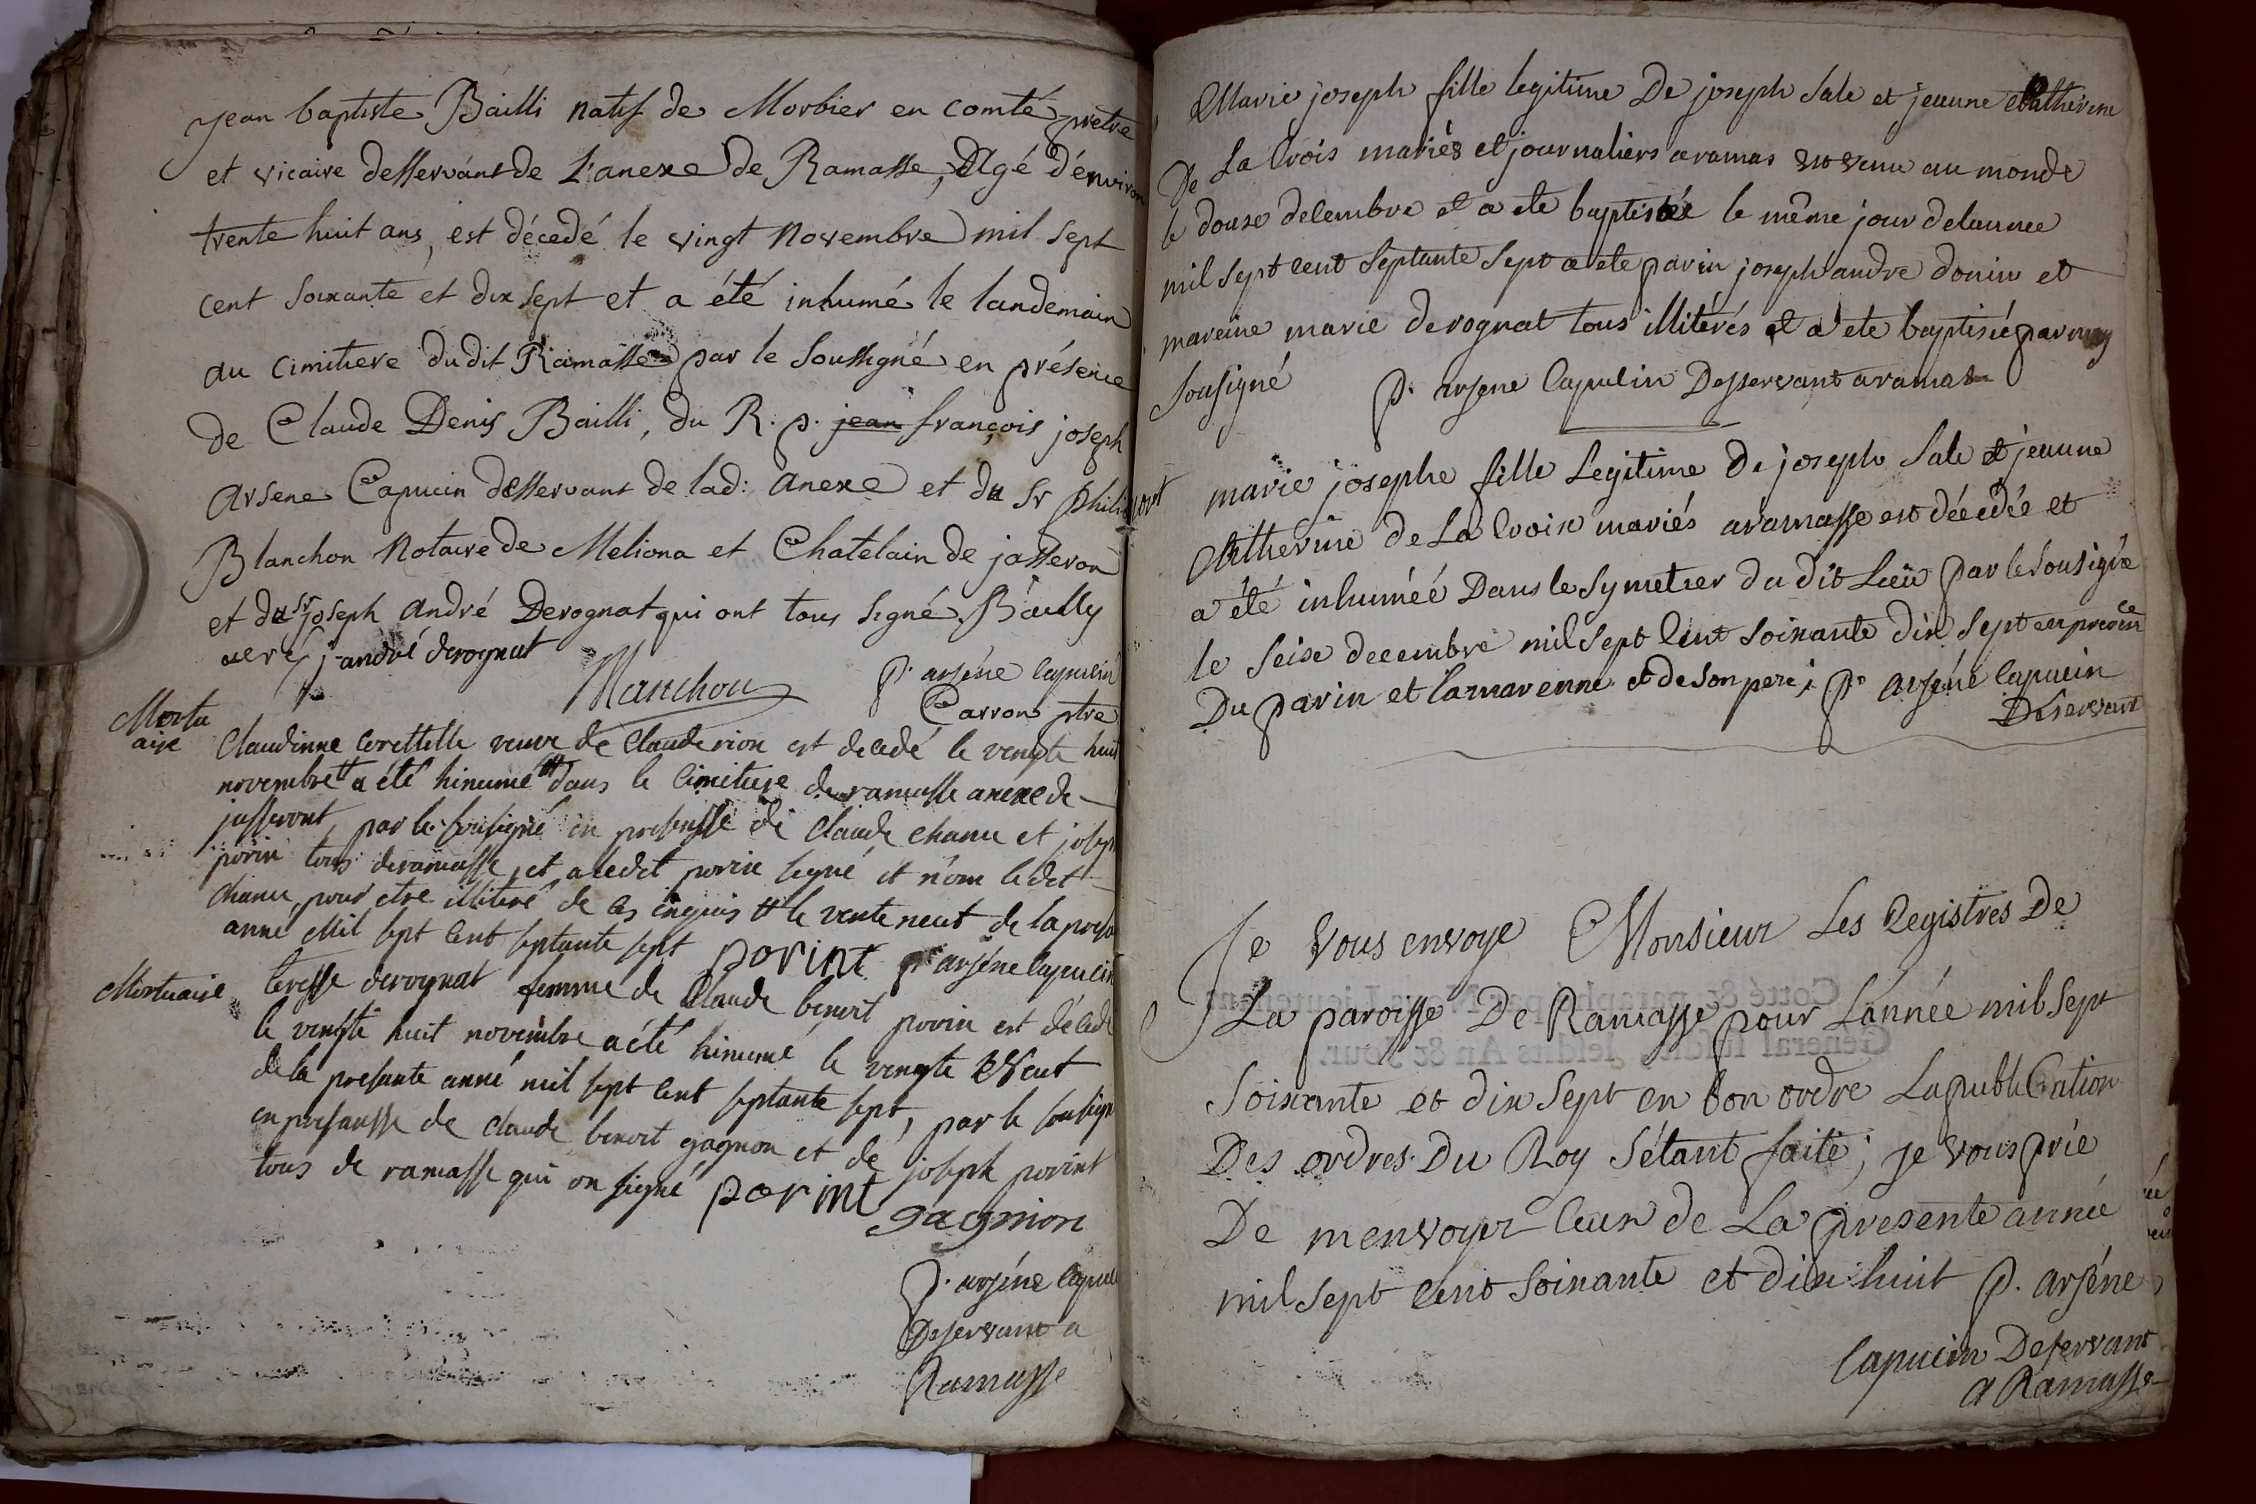 Jean baptiste Bailli natif de Morbier en comté prêtre
et vicaire desservant de L'anexe de Ramasse, Agé d'environ
trente huit ans, est décedé le vingt Novembre mil sept
cent soixante et dix sept et a été inhumé le landemain
au cimitiere dudit Ramasse par le Soussigné en présence
de Claude Denis Bailli, du R. p. jean françois joseph
Arsene Capucin desservant de lad: Anexe et du Sr
Blanchon Notaire de Meliona et Chatelain de jasseron
et du Sr joseph André Derognat qui ont tous signé. Bailly
j. andré derognat
Blanchon
p. arséne capucin
Carron ptre
Mortuaire
Claudinne verve de Claude rion est decedé le vengte huit
novembre # a été hinumé dans le Cimitiere de ramasse anexe de
jasseront par le sousigné en presensse de Claude chanu et joseph
porin tous deramasse, et a ledit porin segné et non ledit
chanu, pour etre illiteré de ces enquis # le vente neut de la presa
anné Mil sept cent septante sept porint p. arséne Capucin
Mortuaire
teresse derognat femme de Claude benoit porin est décedé
le vengte huit novembre a été hinumé le vengte Neut
de la presante anné mil sept cent septante sept, par le sousigne
en presansse de Claude benoit gagnon et de joseph porint
tous de ramasse qui on signé porint
gagnion
p. arséne Capucin
Deservant a
Ramasse
Marie joseph fille legitime De joseph Sale et jeanne Catherine
De La Crois mariés et journaliers aramas est venu au monde
le douse decembre et a ete baptisée le même jour delannee
mil sept cent Septante Sept a ete parin joseph andre donin et
mareine marie derognat tous illiterés et a ete baptisée par moy
Sousigné p. arsene Capucin Desservant a ramas
mort
marie josephe fille Legitime De joseph Sale et jeanne
Catherine de La Croix mariés aramasse est décédée et
a été inhumée Dans le Symetier du dit Lieu par le sousigné
le Seise decembre mil sept Cent soixante dix sept en presence
Du parin et la marenne et de son pere p. arséne Capucin
Déservant
Je vous envoye Monsieur Les Registres De
La paroisse De Ramasse pour L'année mil sept
Cotté & paraphé par Nous Lieutenant
Général susdit, lesdits An & jour.
Soixante et dix Sept en bon ordre La publiCation
Des ordres Du Roy S'étant faite; je vous prie
De menvoyer Ceux de La presente année
mil sept Cent Soixante et dix huit p. arséne
Capucin Deservant
a Ramasse